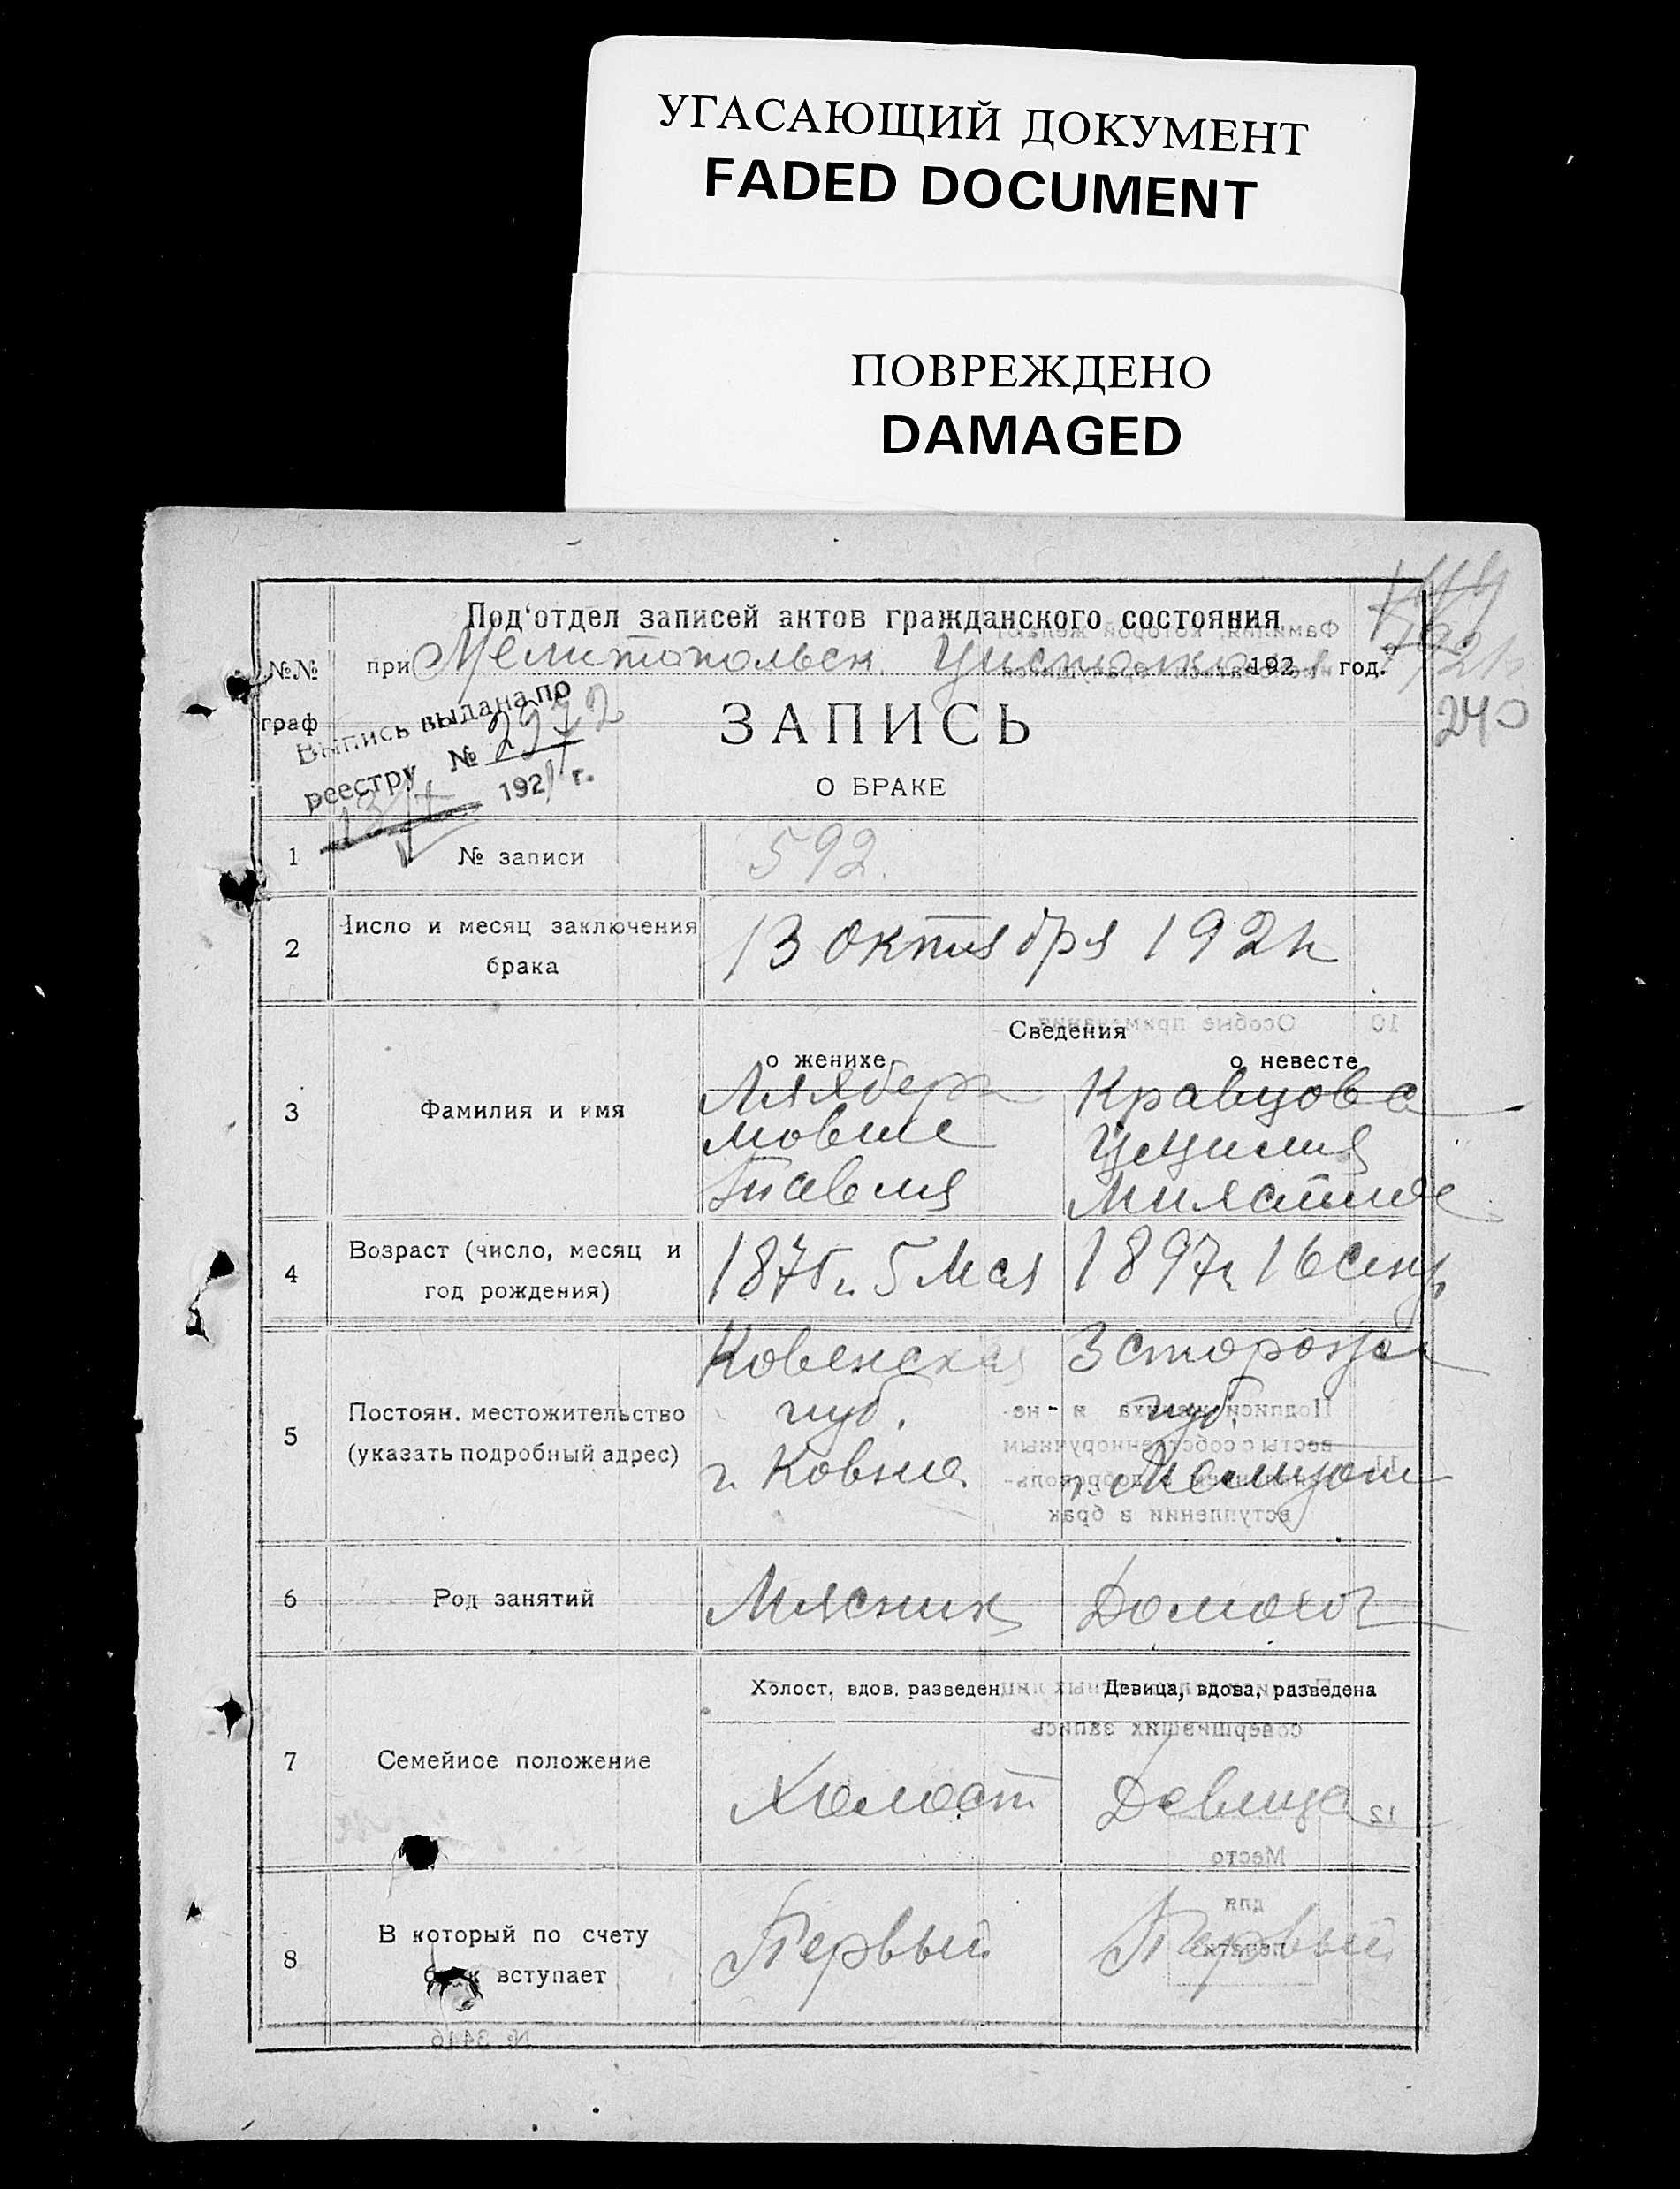 УГАСАЮЩИЙ ДОКУМЕНТ
FADED DOCUMENT
ПОВРЕЖДЕНО
DAMAGED
Под'отдел записей актов гражданского состояния
№№ граф
при Мелитопольск. 1921 год.
240
Выпись выдана по
реестру № 2972
13/X 1921 г.
ЗАПИСЬ
О БРАКЕ
1 № записи 592.
2 Число и месяц заключения брака 13 октября 1921г
Сведения
о женихе о невесте
3 Фамилия и имя
Кравцова
Мовше Цецилия
4 Возраст (число, месяц и год рождения) 5 Мая 1897г 16 сент
5 Постоян. местожительство (указать подробный адрес)
Ковенская
губ. губ.
г. Ковно
6 Род занятий Мясник Домохоз
7 Семейное положение
Холост, вдов. разведен Девица, вдова, разведена
Холост Девица
8 В который по счету брак вступает Первый Первый